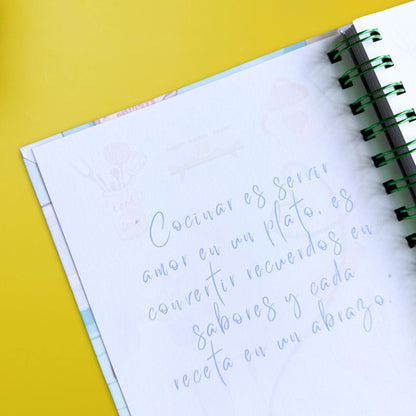 Cocinar es servir
amor en un plato, es
convertir recuerdos en
sabores y cada
receta en un abrazo.